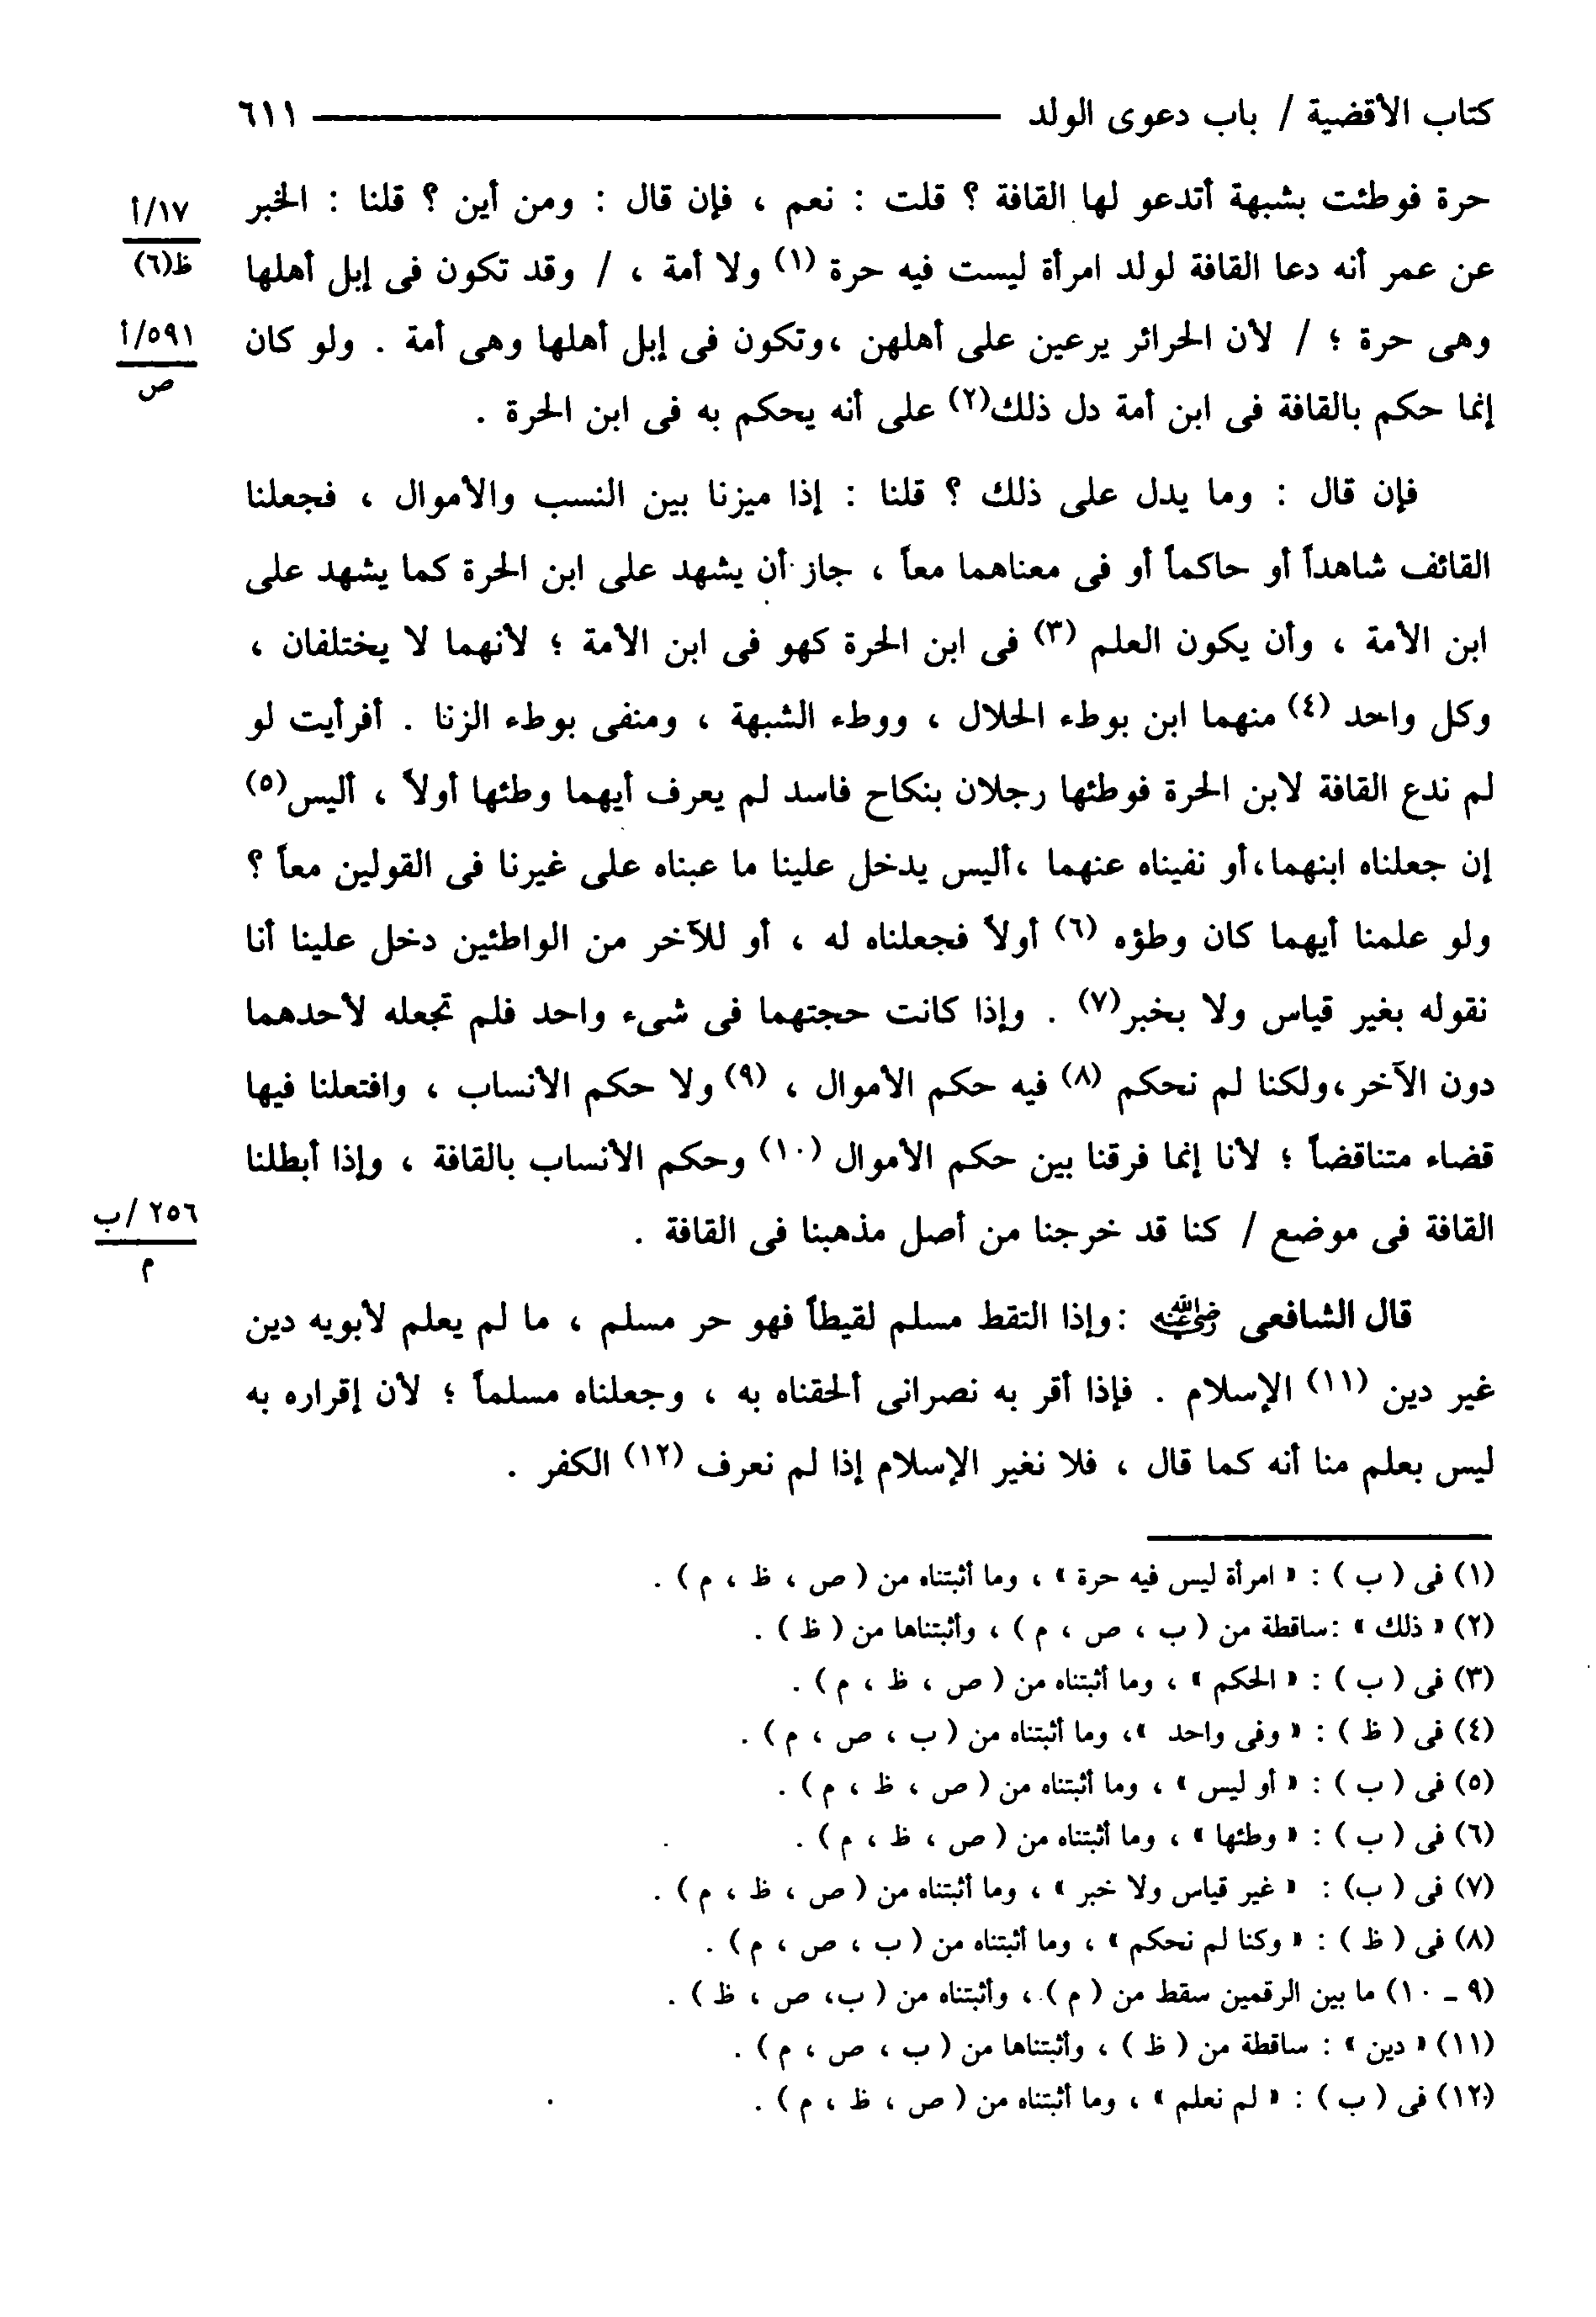 كتاب الأقضية / باب دعوى الولد ٦١١
حرة فوطئت بشبهة أتدعو لها القافة ؟ قلت : نعم ، فإن قال : ومن أين ؟ قلنا : الخبر
١٧/أ
ظ(٦)
عن عمر أنه دعا القافة لولد امرأة ليست فيه حرة (١) ولا أمة ، / وقد تكون فى إبل أهلها
وهى حرة ؛ / لأن الحرائر يرعين على أهلهن ،وتكون فى إبل أهلها وهى أمة . ولو كان
٥٩١/أ
ص
إنما حكم بالقافة فى ابن أمة دل ذلك(٢) على أنه يحكم به فى ابن الحرة .
فإن قال : وما يدل على ذلك ؟ قلنا : إذا ميزنا بين النسب والأموال ، فجعلنا
القائف شاهداً أو حاكماً أو فى معناهما معاً ، جاز أن يشهد على ابن الحرة كما يشهد على
ابن الأمة ، وأن يكون العلم (٣) فى ابن الحرة كهو فى ابن الأمة ؛ لأنهما لا يختلفان ،
وكل واحد (٤) منهما ابن بوطء الحلال ، ووطء الشبهة ، ومنفى بوطء الزنا . أفرأيت لو
لم ندع القافة لابن الحرة فوطئها رجلان بنكاح فاسد لم يعرف أيهما وطئها أولاً ، أليس(٥)
إن جعلناه ابنهما،أو نفيناه عنهما ،أليس يدخل علينا ما عبناه على غيرنا فى القولين معاً ؟
ولو علمنا أيهما كان وطؤه (٦) أولاً فجعلناه له ، أو للآخر من الواطئين دخل علينا أنا
نقوله بغير قياس ولا بخبر(٧) . وإذا كانت حجتهما فى شىء واحد فلم تجعله لأحدهما
دون الآخر،ولكنا لم نحكم (٨) فيه حكم الأموال ، (٩) ولا حكم الأنساب ، وافتعلنا فيها
قضاء متناقضاً ؛ لأنا إنما فرقنا بين حكم الأموال (١٠) وحكم الأنساب بالقافة ، وإذا أبطلنا
القافة فى موضع / كنا قد خرجنا من أصل مذهبنا فى القافة .
٢٥٦/ب
م
قال الشافعى رضي الله عنه :وإذا التقط مسلم لقيطاً فهو حر مسلم ، ما لم يعلم لأبويه دين
غير دين (١١) الإسلام . فإذا أقر به نصرانى ألحقناه به ، وجعلناه مسلماً ؛ لأن إقراره به
ليس بعلم منا أنه كما قال ، فلا نغير الإسلام إذا لم نعرف (١٢) الكفر .
(١) فى ( ب ) : « امرأة ليس فيه حرة » ، وما أثبتناه من ( ص ، ظ ، م ) .
(٢) « ذلك » :ساقطة من ( ب ، ص ، م ) ، وأثبتناها من ( ظ ) .
(٣) فى ( ب ) : « الحكم » ، وما أثبتناه من ( ص ، ظ ، م ) .
(٤) فى ( ظ ) : « وفى واحد »، وما أثبتناه من ( ب ، ص ، م ) .
(٥) فى ( ب ) : « أو ليس » ، وما أثبتناه من ( ص ، ظ ، م ) .
(٦) فى ( ب ) : « وطئها » ، وما أثبتناه من ( ص ، ظ ، م ) .
(٧) فى ( ب) : « غير قياس ولا خبر » ، وما أثبتناه من ( ص ، ظ ، م ) .
(٨) فى ( ظ ) : « وكنا لم نحكم » ، وما أثبتناه من ( ب ، ص ، م ) .
(٩ - ١٠) ما بين الرقمين سقط من ( م ) ، وأثبتناه من ( ب، ص ، ظ ) .
(١١) « دين » : ساقطة من ( ظ ) ، وأثبتناها من ( ب ، ص ، م ) .
(١٢) فى ( ب ) : « لم نعلم » ، وما أثبتناه من ( ص ، ظ ، م ) .